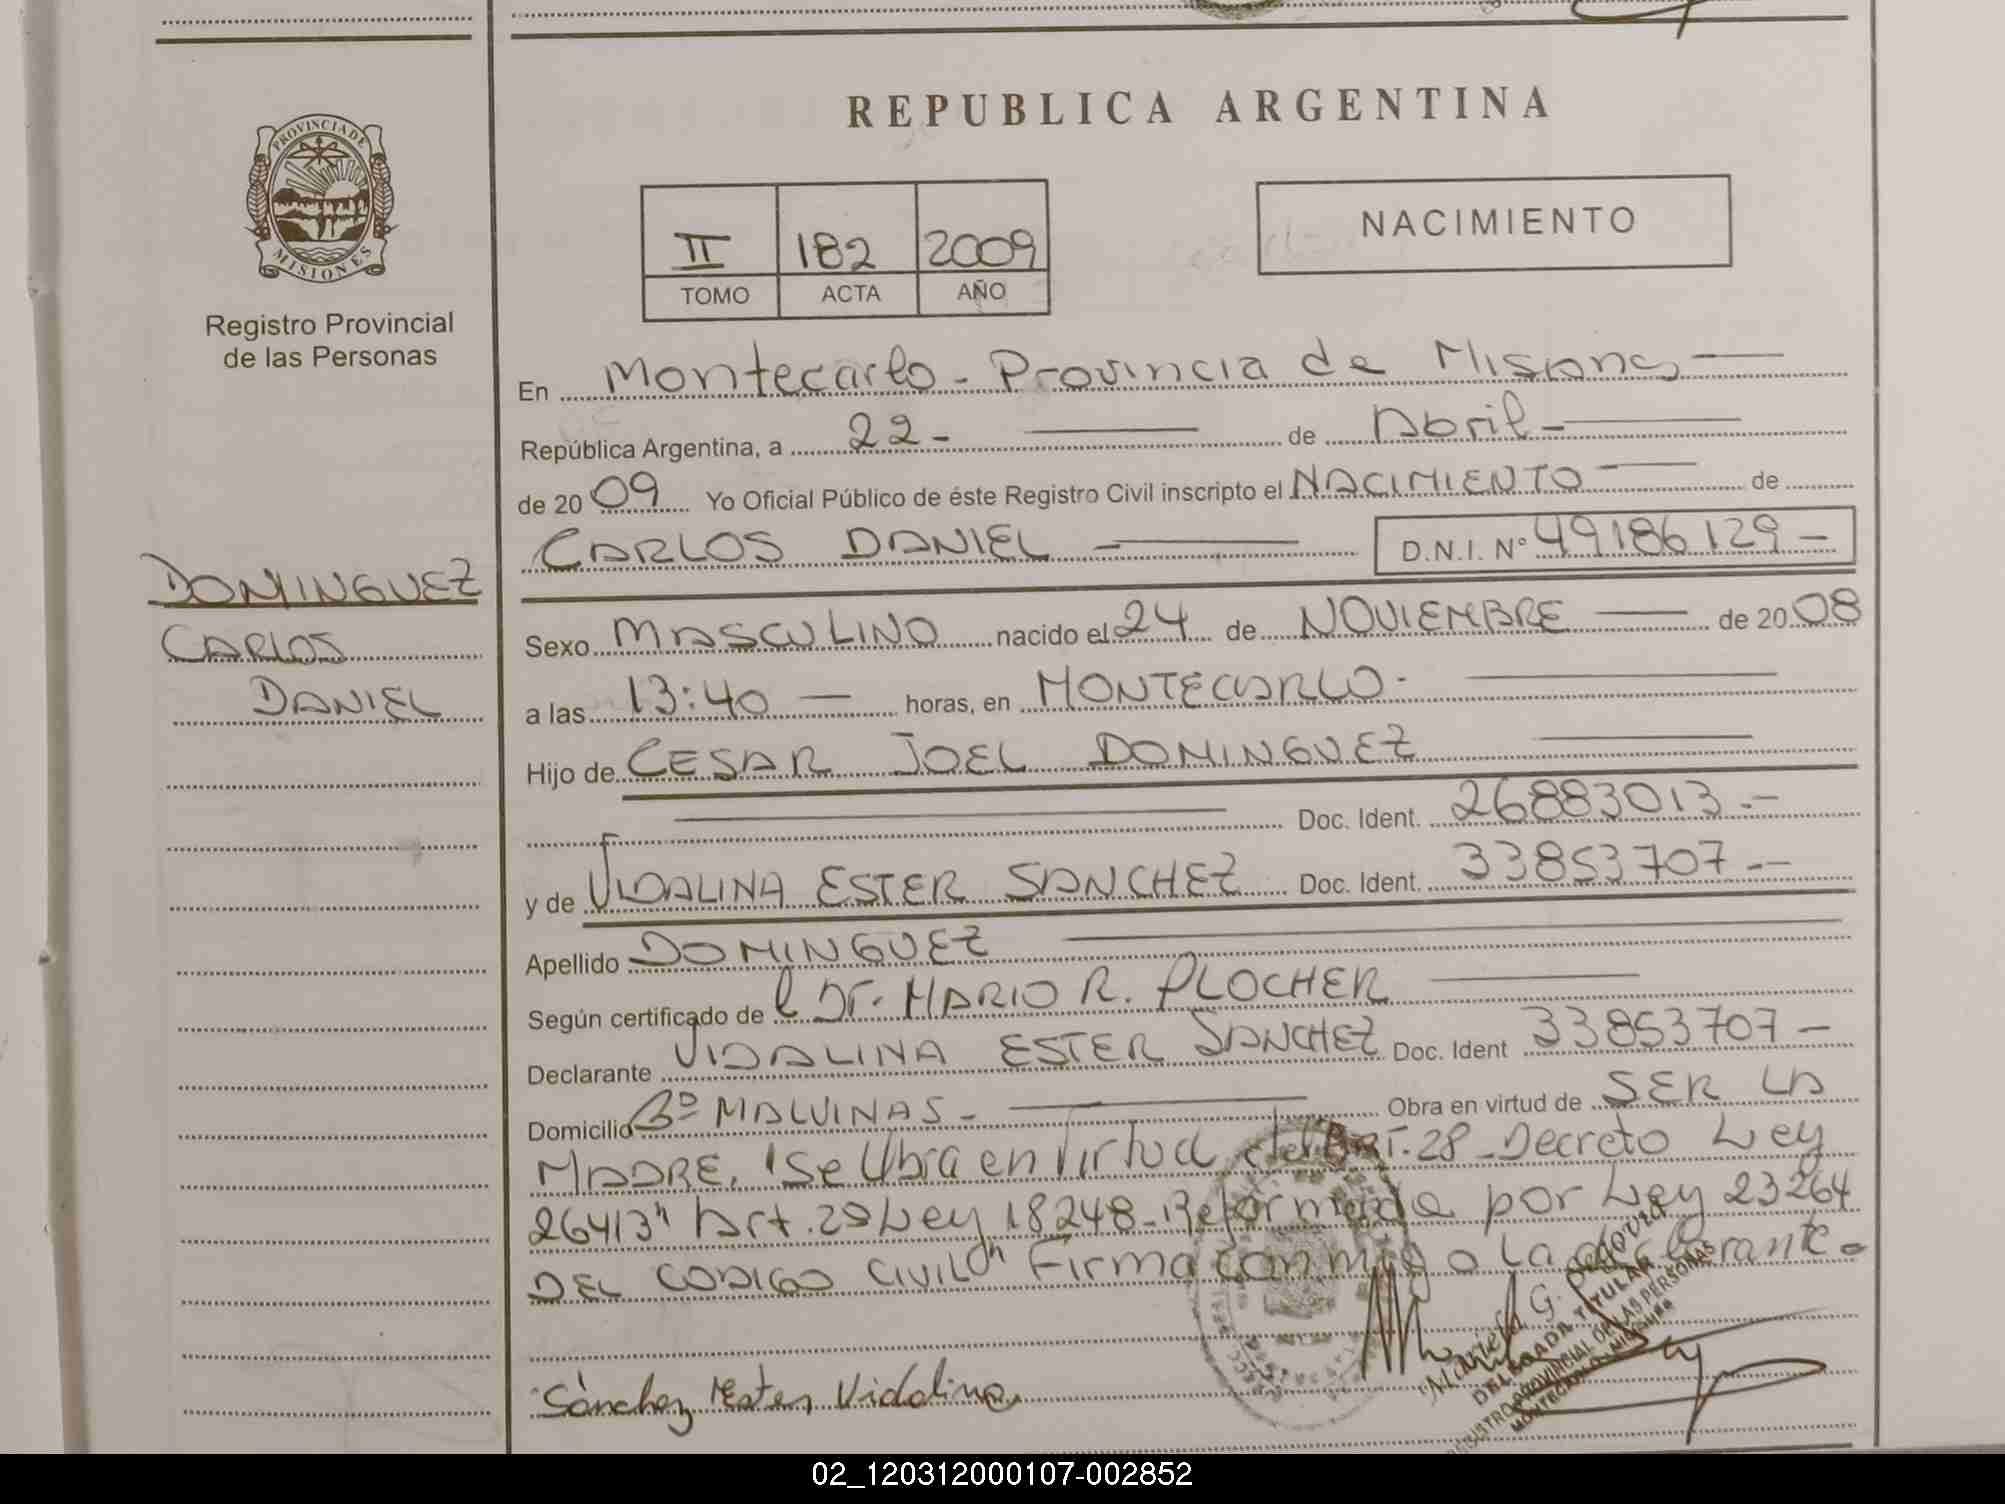 REPUBLICA ARGENTINA
PROVINCIA DE
MISIONES
Registro Provincial
de las Personas
II 182 2009
TOMO ACTA AÑO
NACIMIENTO
En Montecarlo - Provincia de Misiones
República Argentina, a 22 - de Abril -
de 20 09 Yo Oficial Público de éste Registro Civil inscripto el NACIMIENTO de
CARLOS DANIEL — D.N.I. Nº 49186129 -
DOMINGUEZ
CARLOS
DANIEL
Sexo MASCULINO nacido el 24 de NOVIEMBRE — de 20 08
a las 13:40 — horas, en MONTECARLO -
Hijo de CESAR JOEL DOMINGUEZ
Doc. Ident. 26883013.-
y de VIDALINA ESTER SANCHEZ Doc. Ident. 33853707.-
Apellido DOMINGUEZ
Según certificado de Dr. MARIO R. PLOCHER
Declarante VIDALINA ESTER SANCHEZ Doc. Ident 33853707 -
Domicilio Bº MALVINAS - Obra en virtud de SER LA
MADRE. "Se Obra en Virtud del Art. 28 - Decreto Ley
26413" Art. 29 Ley 18248 - Reformada por Ley 23264
DEL CODIGO CIVIL Firma conmigo La declarante -
Sánchez Ester Vidalina
Mariela G.
DELEGADA TITULAR
REGISTRO PROVINCIAL DE LAS PERSONAS
MONTECARLO - MISIONES
02_120312000107-002852